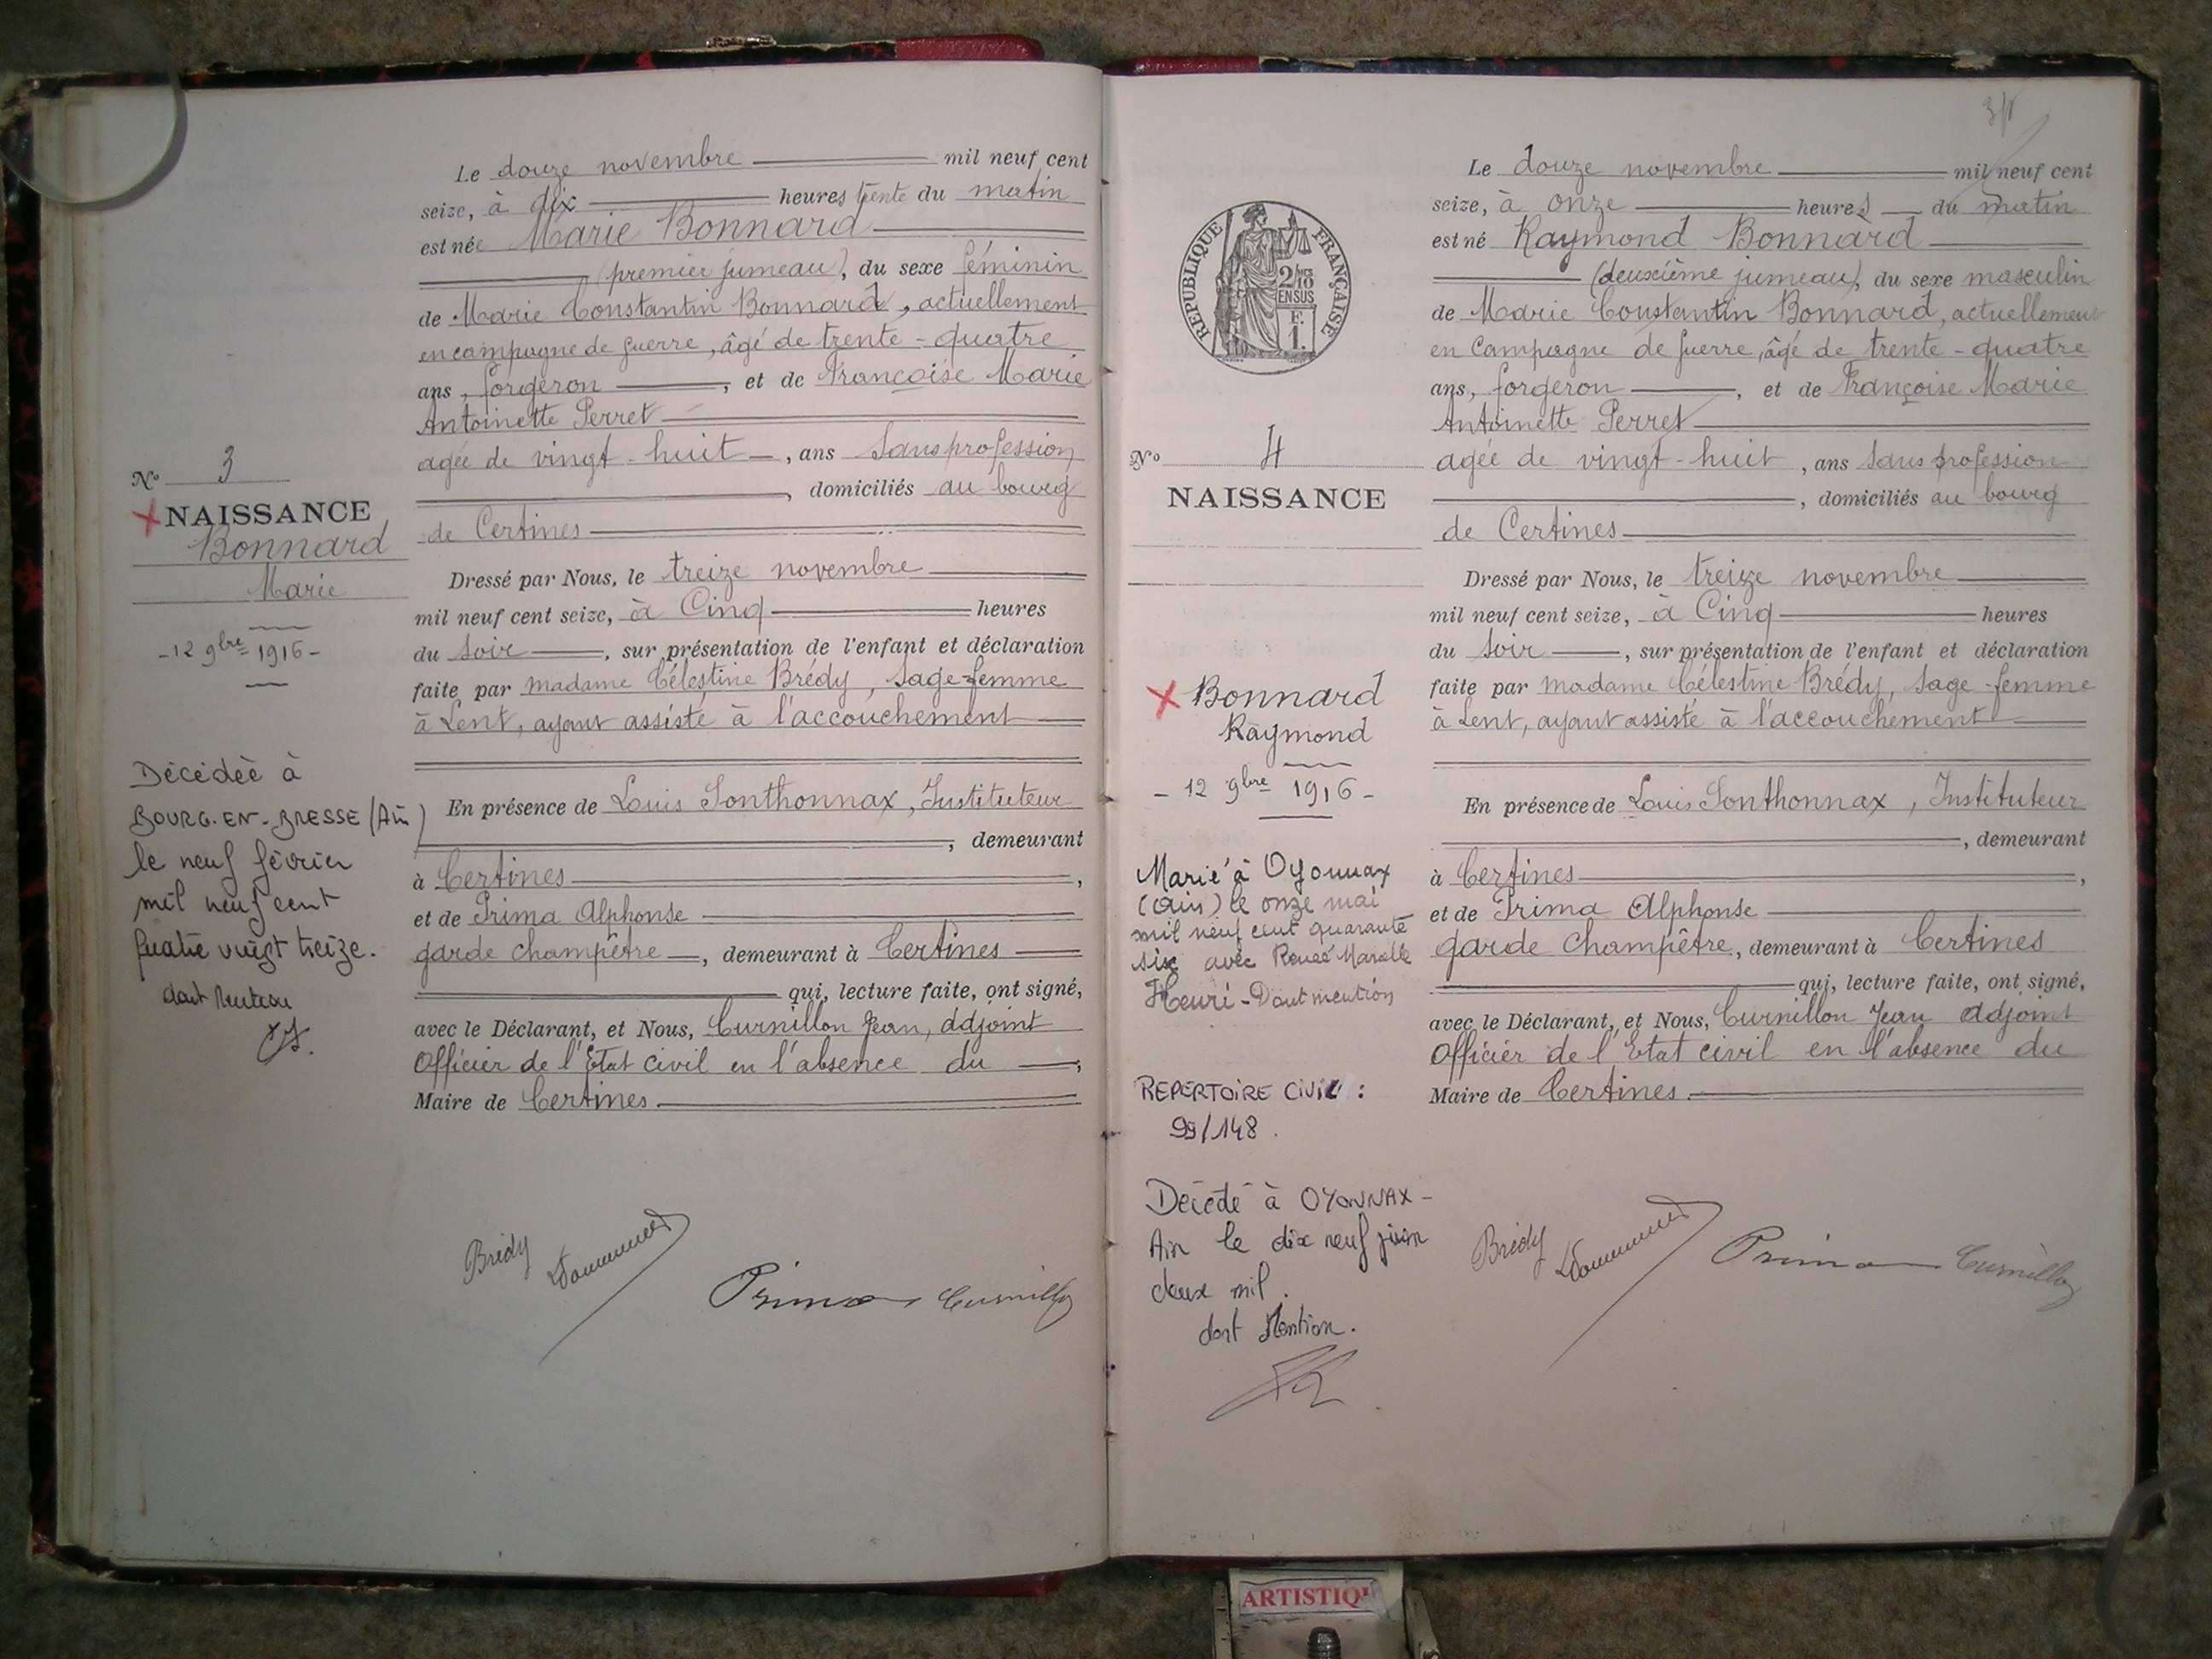 Le douze novembre mil neuf cent
seize, à dix heures trente du matin
est née Marie Bonnard
(premier jumeau), du sexe féminin
de Marie Constantin Bonnard, actuellement
en campagne de guerre, âgé de trente-quatre
ans, forgeron, et de Françoise Marie
Antoinette Perret
agée de vingt-huit, ans Sans profession
, domiciliés au bourg
de Certines
Dressé par Nous, le treize novembre
mil neuf cent seize, à Cinq heures
du soir, sur présentation de l'enfant et déclaration
faite par madame Célestine Brédy, Sage-femme
à Lent, ayant assisté à l'accouchement
En présence de Louis Sonthonnax, Instituteur
, demeurant
à Certines,
et de Prima Alphonse
garde champêtre, demeurant à Certines
qui, lecture faite, ont signé,
avec le Déclarant, et Nous, Curnillon Jean, adjoint
Officier de l'Etat civil en l'absence du
Maire de Certines
Brédy
Prima
Curnillon
No 3
NAISSANCE
Bonnard
Marie
-12 9bre 1916-
Décédée à
BOURG-EN-BRESSE (Ain)
le neuf février
mil neuf cent
quatre vingt treize.
dont Mention
REPUBLIQUE FRANÇAISE
2/10
EN SUS
F.
1.
No 4
NAISSANCE
Bonnard
Raymond
- 12 9bre 1916 -
Marié à Oyonnax
(Ain) le onze mai
mil neuf cent quarante
six avec Renée Marcelle
Henri - Dont mention
REPERTOIRE CIVIL :
99/148.
Décédé à OYONNAX -
Ain le dix neuf juin
deux mil.
dont Mention.
Le douze novembre mil neuf cent
seize, à onze heures du matin
est né Raymond Bonnard
(deuxième jumeau), du sexe masculin
de Marie Constantin Bonnard, actuellement
en Campagne de guerre, âgé de trente-quatre
ans, forgeron, et de Françoise Marie
Antoinette Perret
agée de vingt-huit, ans Sans profession
, domiciliés au bourg
de Certines
Dressé par Nous, le treize novembre
mil neuf cent seize, à Cinq heures
du soir, sur présentation de l'enfant et déclaration
faite par madame Célestine Brédy, Sage-femme
à Lent, ayant assisté à l'accouchement
En présence de Louis Sonthonnax, Instituteur
, demeurant
à Certines,
et de Prima Alphonse
garde champêtre, demeurant à Certines
qui, lecture faite, ont signé,
avec le Déclarant, et Nous, Curnillon Jean adjoint
Officier de l'Etat civil en l'absence du
Maire de Certines.
Brédy
Prima
Curnillon
ARTISTIQ